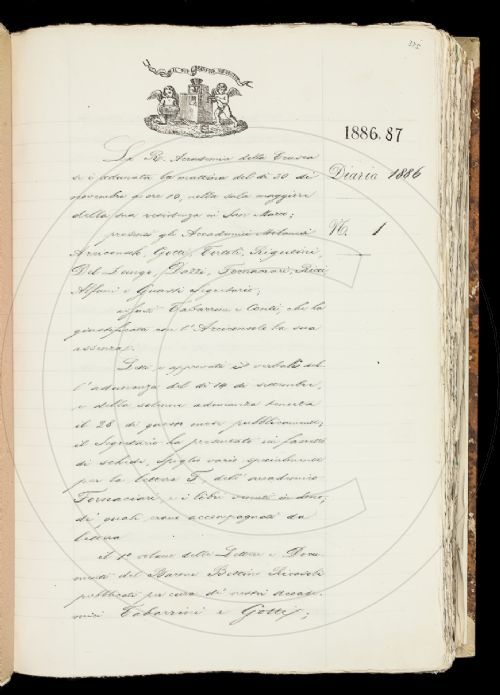 375
IL PIÙ BEL FIOR NE COGLIE
1886.87
Diaria 1886
N. 1
La R. Accademia della Crusca
si è adunata la mattina del dì 20 di
novembre a ore 10, nella sala maggiore
della sua residenza in San Marco;
presenti gli Accademici Milanesi
Arciconsolo, Gotti, Tortoli, Rigutini,
Del Lungo, Dazzi, Fornaciari, Ricci
Alfani e Guasti Segretario;
assenti Tabarrini e Conti, che ha
giustificata con l'Arciconsolo la sua
assenza.
Letti e approvati i verbali del
l'adunanza del dì 14 di settembre,
e della solenne adunanza tenuta
il 28 di questo mese pubblicamente;
il Segretario ha presentati
di schede, spoglio vario specialmente
per la lettera F, dell'accademico
Fornaciari, e i libri venuti in dono,
de' quali erano accompagnati da
lettera
il 1° volume delle Lettere e Docu
menti del Barone Bettino Ricasoli
pubblicati per cura de' nostri Accade
mici Tabarrini e Gotti;